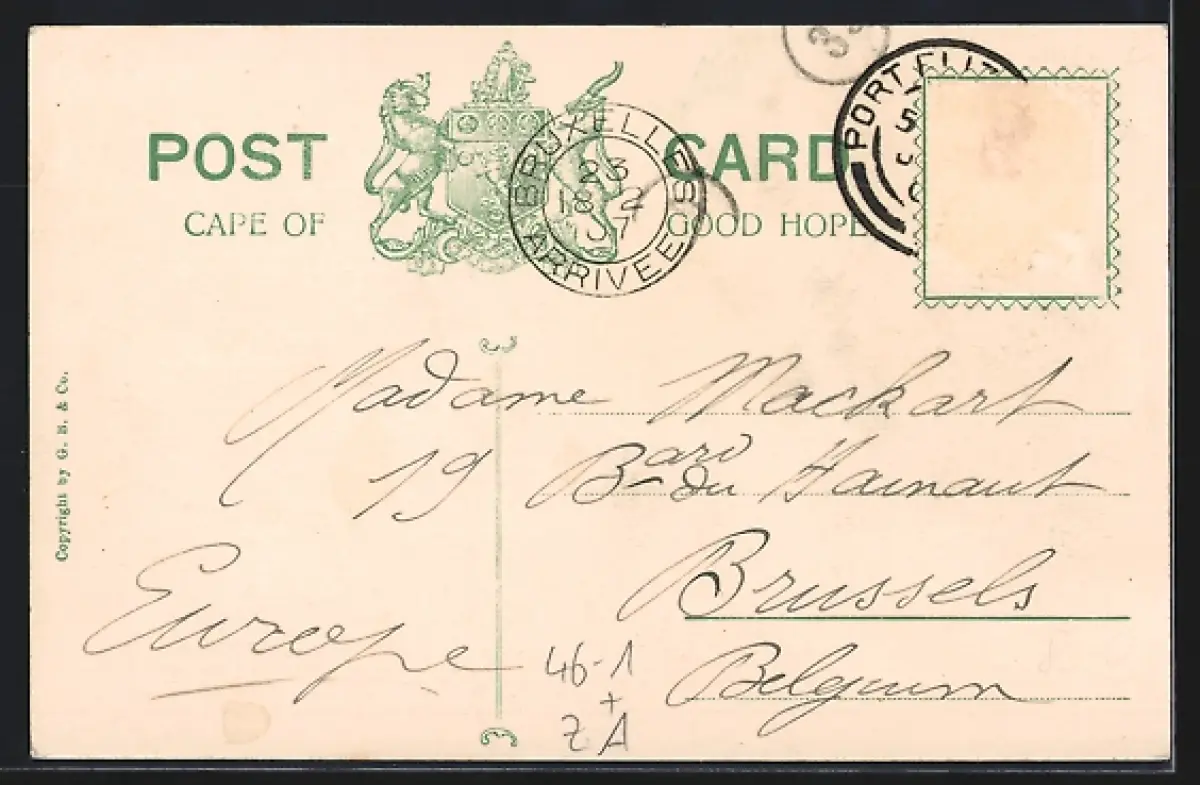 POST CARD
CAPE OF GOOD HOPE
BRUXELLES
23
18 2
07
ARRIVEE
PORT ELIZ
Copyright by G. B. & Co.
Madame Mackart
19 Bard du Hainaut
Brussels
Europe
Belgium
46-1
+
ZA